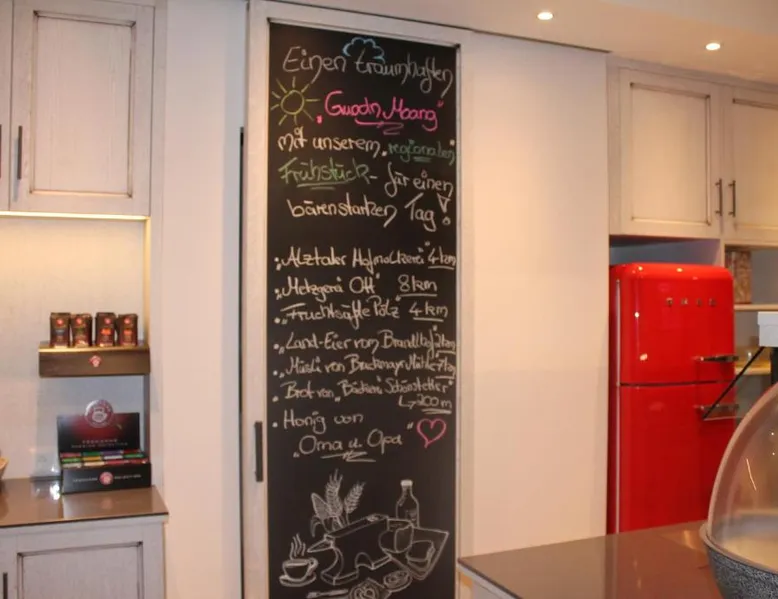 Einen traumhaften
„Guadn Moang"
mit unserem „regionalen"
Frühstück - für einen
bärenstarken Tag!
• „Alztaler Hofmolkerei" 4 km
• „Metzgerei Ott" 8 km
• „Fruchtsäfte Pölz" 4 km
• „Land-Eier vom Brandlhof 2km
• „Müsli von Bruckmayer Mühle 7km
• Brot von „Bäckerei Schönstetter"
↳ 200 m
• Honig von
„Oma u. Opa"
SMEG